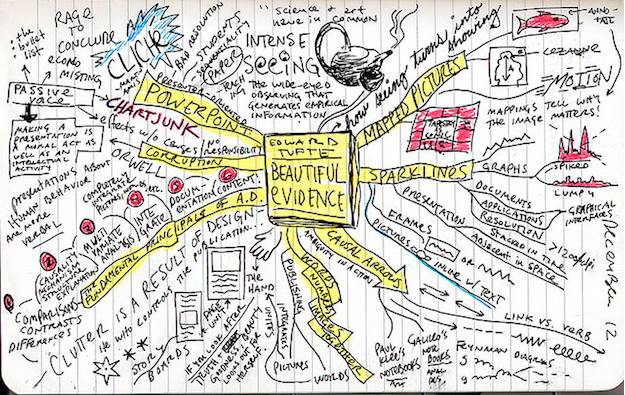 : the
bullet
: list
RAGE
TO
CONCLUDE
econo
MISSING
CLICHÉ
BAD RESOLUTION
STUDENTS
PAPER
TEACH
PRESENTER-ORIENTED
"Science & art
have in common
INTENSE
SEEING
The wide-eyed
observing that
generates empirical
information
how seeing turns into
showing
ANNO-
TATE
CEZANNE
MOTION
MAPPED PICTURES
MAPPINGS TELL WHY
THE IMAGE MATTERS!
PASSIVE
VOICE
MAKING A
PRESENTATION IS
A MORAL ACT AS
WELL AS AN
INTELLECTUAL
ACTIVITY
POWERPOINT
CHARTJUNK
effects w/o causes/
NO
RESPONSIBILITY
CORRUPTION
ORWELL
EDWARD
TUFTE
BEAUTIFUL
EVIDENCE
SPARKLINES
GRAPHS
SPIKED
LUMPY
DOCUMENTS
APPLICATIONS
RESOLUTION
STACKED IN TIME
Adjacent in SPACE
PRESENTATION
GRAPHICAL
INTERFACES
FRAMES
or
PICTURES or INLINE w/ TEXT
PRESENTATIONS ABOUT
HUMAN BEHAVIOR
ARE MORE
VERBAL
DOCUM-
ENTATION
CONTENT!
INTE
GRATE
MULTI
VARIATE
ANALYSIS
CAUSALITY
MECHANISM
STRUCTURE
EXPLANATION
COMPARISONS
CONTRASTS
DIFFERENCES
THE FUNDAMENTAL PRINCIPALS OF A.D.
CLUTTER IS A RESULT OF DESIGN
He who controls the publication
STORY
BOARDS
PAGE
UNIT
THE
HAND
IF YOU LOOK AFTER
TRUTH &
GOODNESS BEAUTY
LOOKS OUT FOR
HERSELF
PUBLISHING
INTEGRATES
UNITES
PICTURES
WORDS
WORDS
NUMBERS
IMAGES
TOGETHER
CAUSAL ARROWS
AMBIGUITY IN ACTION
LINK VS. VERB
PAUL
KLEE'S
NOTEBOOKS
GALILEO'S
NOTE
BOOKS
FEYNMAN
DIAGRAMS
December 12